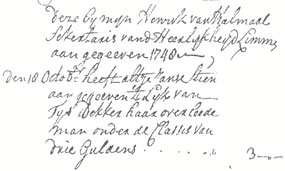 Deze by mijn Henrik van Halmaal
Sekretaris vand Heerlijkheyd Limmen
aan gegeeven 1748
den 18 Octob. heeft Anse Steen
aan gegeven t Lyk van
Tys Dekker haar overleede
man onder de Classes van
drie Guldens . . . . . 3-